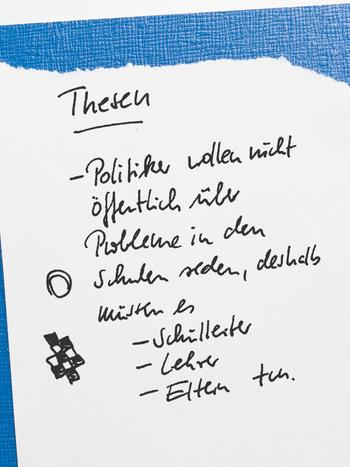 Thesen
- Politiker wollen nicht
öffentlich über
Probleme in den
Schulen reden, deshalb
müssen es
- Schulleiter
- Lehrer
- Eltern tun.